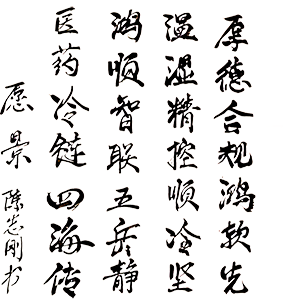 厚德合规鸿款先
温湿精控顺冷坚
鸿顺智联五岳静
医药冷链四海传
愿景
陈志刚书